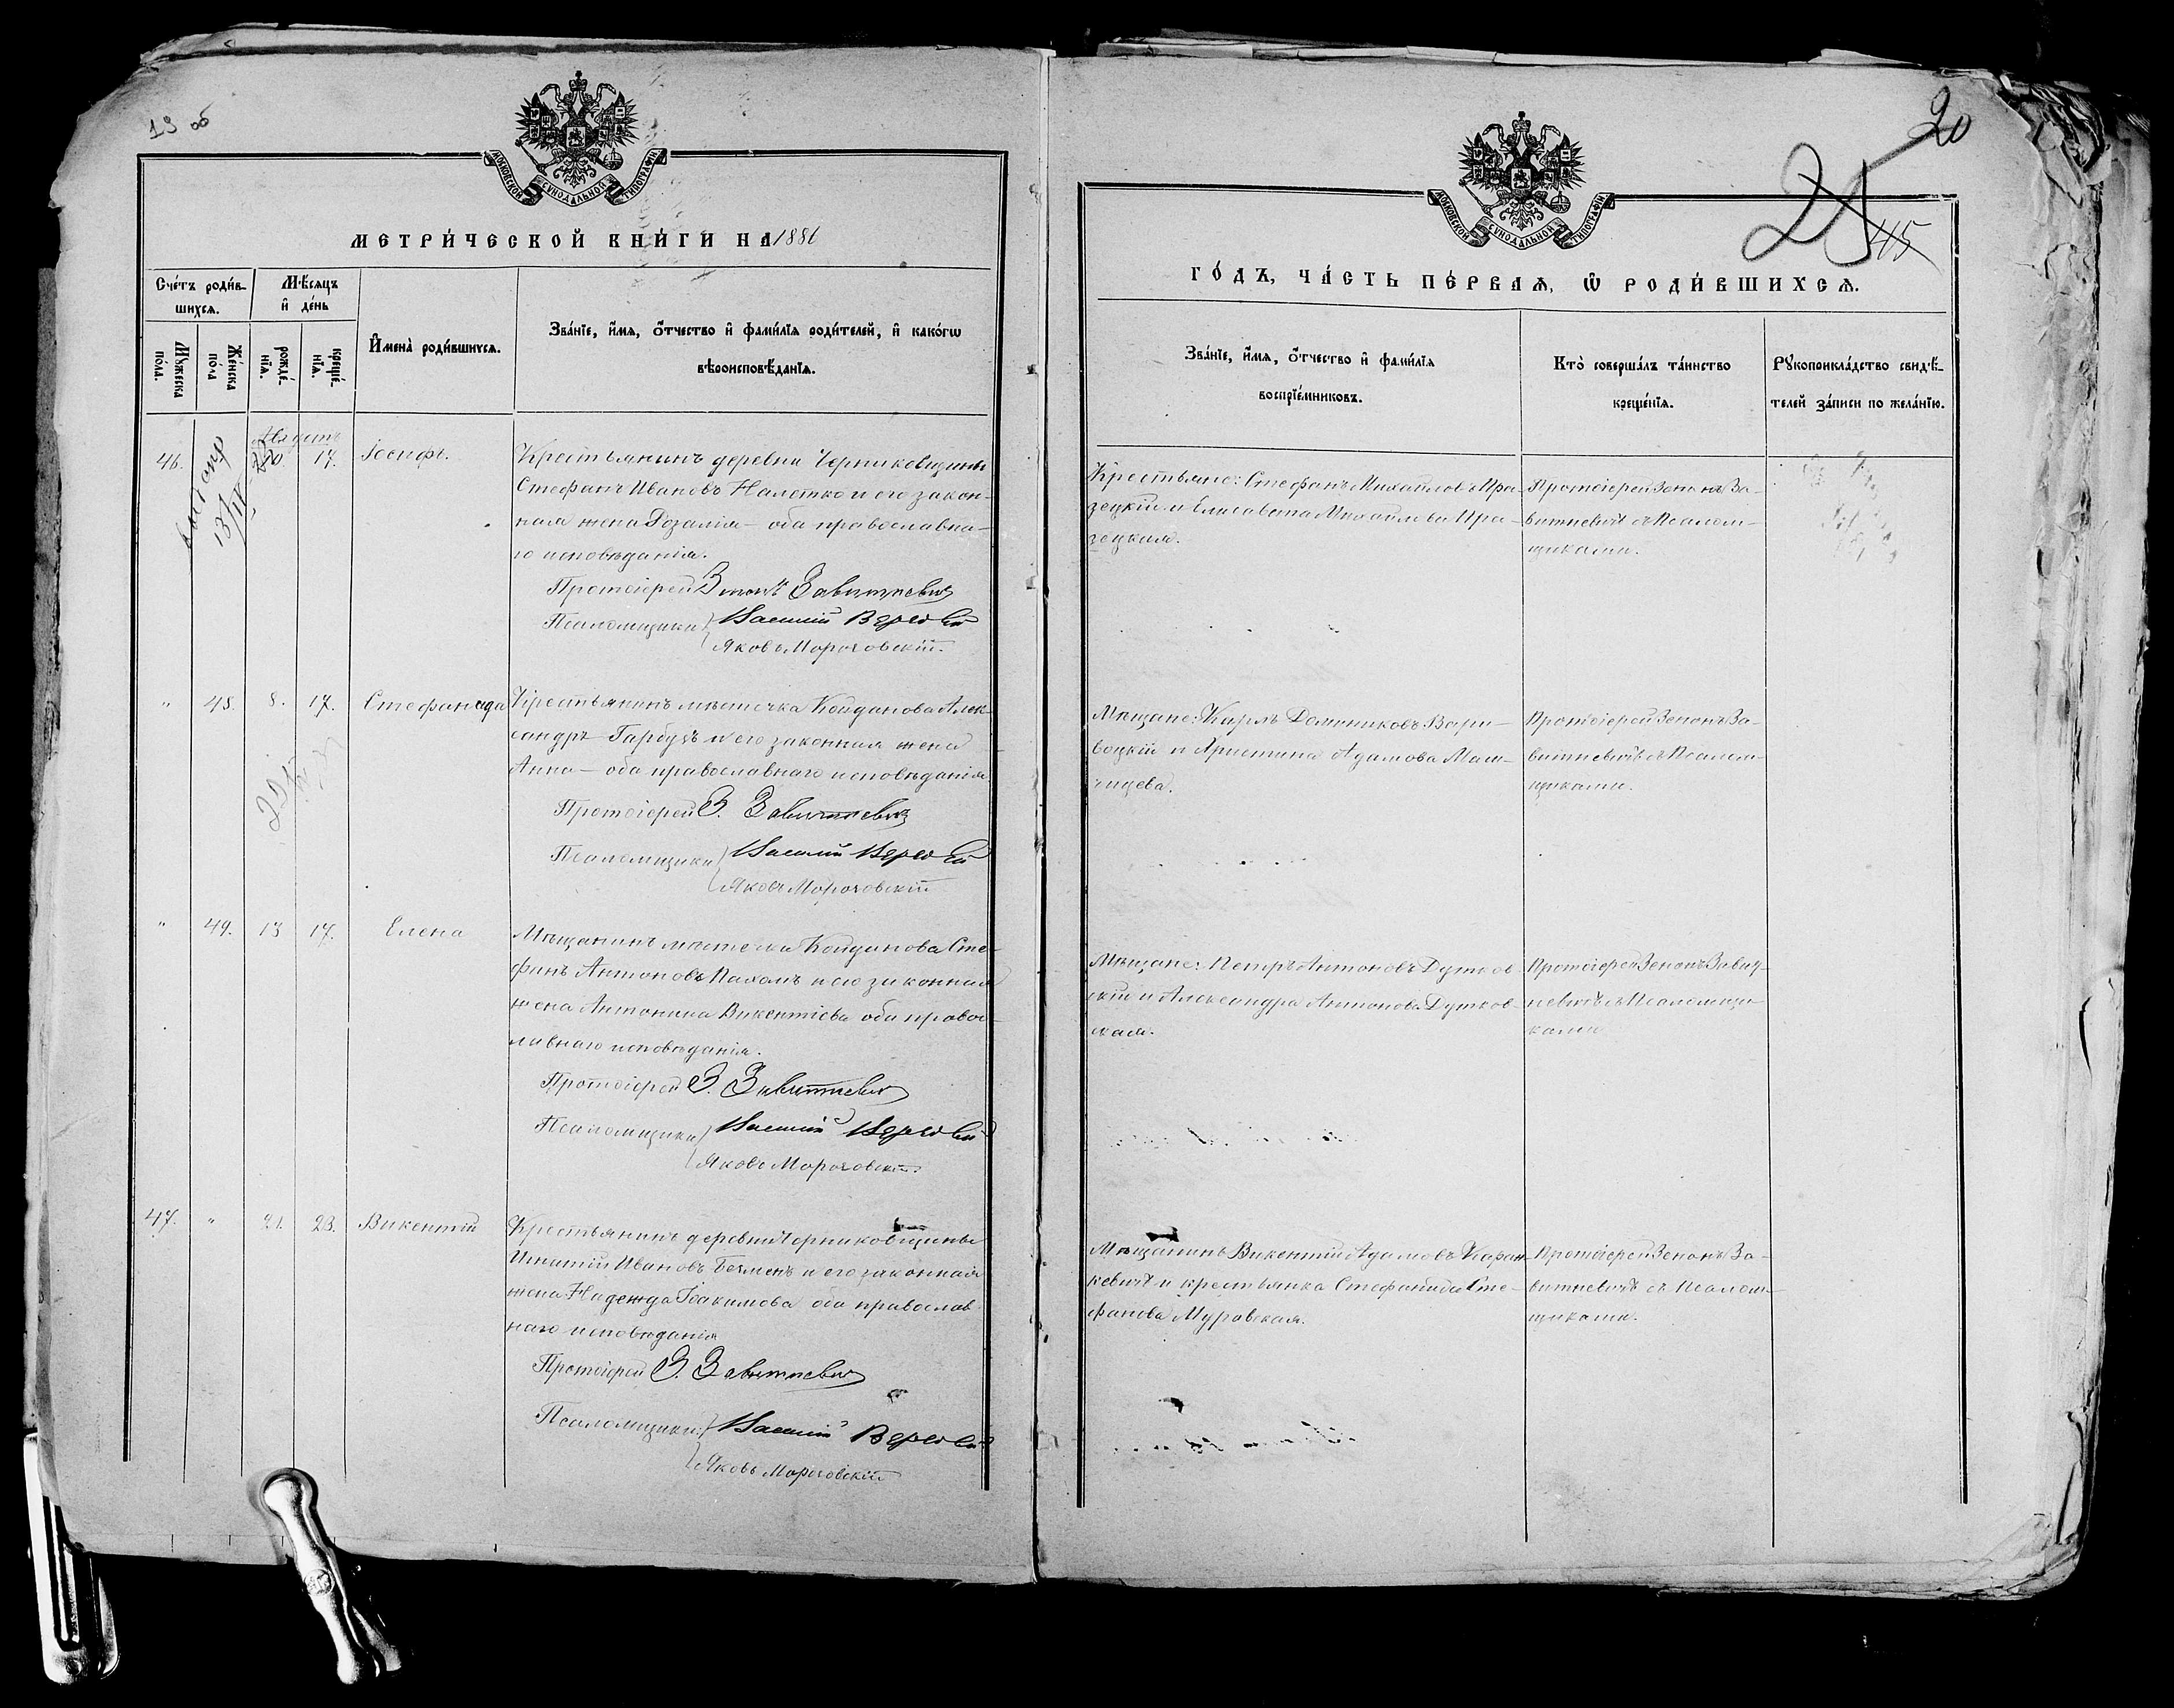 19 об
МОСКОВСКОЙ СУНОДАЛЬНОЙ ТИПОГРАФІИ
МЕТРИ́ЧЕСКОЙ КНИ́ГИ НА 1886
Сче́тъ роди́в-
шихсѧ.
Мѣ́сѧцъ
и҆ де́нь
Мꙋ́жеска
по́ла.
Же́нска
по́ла
рожде́-
нїѧ.
креще́-
нїѧ.
И҆мена̀ роди́вшихсѧ.
Зва́нїе, и҆́мѧ, ѻ҆́тчество и҆ фами́лїѧ роди́телей, и҆ како́гѡ
вѣроисповѣ́данїѧ.
46.
17.
Іосифъ.
Крестьянинъ деревни Черниковщины
Стефанъ Ивановъ Налетко и его закон-
ная жена Розалія — оба православна-
го исповѣданія.
Протоіерей Зенонъ Завитневичъ
Псаломщики Василій
Яковъ Мороговскій.
"
48.
8.
17.
Стефанида
Крестьянинъ мѣстечка Койданова Алек-
сандръ Гарбузъ и его законная жена
Анна — оба православнаго исповѣданія
Протоіерей З. Завитневичъ
Псаломщики Василій
Яковъ Мороговскій
"
49.
13
17.
Елена
Мѣщанинъ мѣстечка Койданова Сте-
фанъ Антоновъ Пахомъ и его законная
жена Антонина Викентіева оба правос-
лавнаго исповѣданія.
Протоіерей З. Завитневичъ
Псаломщики Василій
Яковъ Мороговскій.
47.
"
21.
23.
Викентій
Крестьянинъ деревни Черниковщины
Игнатій Ивановъ и его законная
жена Надежда Іоакимова оба православ-
наго исповѣданія
Протоіерей З. Завитневичъ
Псаломщики: Василій
Яковъ Мороговскій
20
25
45
МОСКОВСКОЙ СУНОДАЛЬНОЙ ТИПОГРАФІИ
ГО́ДЪ, ЧА́СТЬ ПЕ́РВАѦ, Ѡ҆ РОДИ́ВШИХСѦ.
Зва́нїе, и҆́мѧ, ѻ҆́тчество и҆ фами́лїѧ
воспрїе́мниковъ.
Кто̀ соверша́лъ та́инство
креще́нїѧ.
Рꙋкоприкла́дство свидѣ́-
телей за́писи по жела́нїю.
Крестьяне: Стефанъ Михайловъ Пра-
зецкій и Елисавета Михайлова Пра-
зецкая.
Протоіерей Зенонъ За-
витневичъ съ Псалом-
щиками.
Мѣщане: Карлъ Доминиковъ Вари-
воцкій и Христина Адамова
Протоіерей Зенонъ За-
витневичъ съ Псалом-
щиками.
Мѣщане: Петръ Антоновъ Дутков-
скій и Александра Антонова Дутков-
ская.
Протоіерей Зенонъ Завит-
невичъ съ Псаломщи-
ками
Мѣщанинъ Викентій Адамовъ Каран-
кевичъ и крестьянка Стефанида Сте-
фанова Муравская.
Протоіерей Зенонъ За-
витневичъ съ Псалом-
щиками.